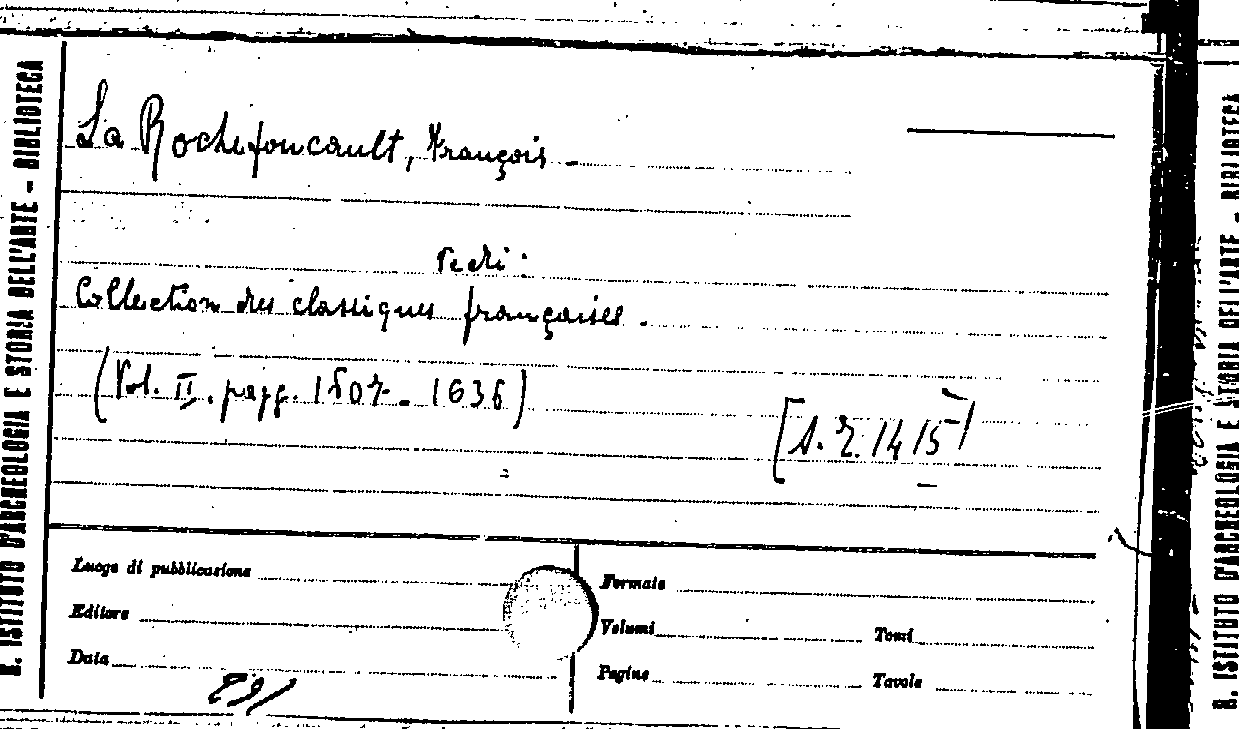 R. ISTITUTO D'ARCHEOLOGIA E STORIA DELL'ARTE – BIBLIOTECA
La Rochefoucault, François –
Vedi :
Collection des classiques françaises.
(Vol. II. pagg. 1507 – 1636)
[A. 2. 14/5]
Luogo di pubblicazione
Editore
Data
Formato
Volumi Tomi
Pagine Tavole
R. ISTITUTO D'ARCHEOLOGIA E STORIA DELL'ARTE – BIBLIOTECA